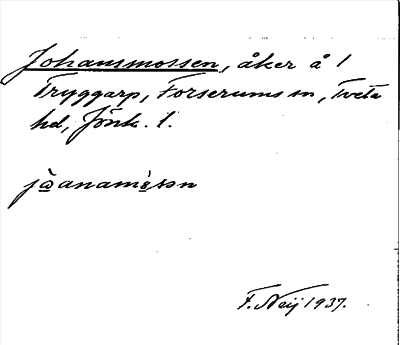 Johansmossen, åker å 1
Tryggarp, Forserums sn, Tveta
hd, Jönk. l.
jòanamòsən
F. Neij 1937.